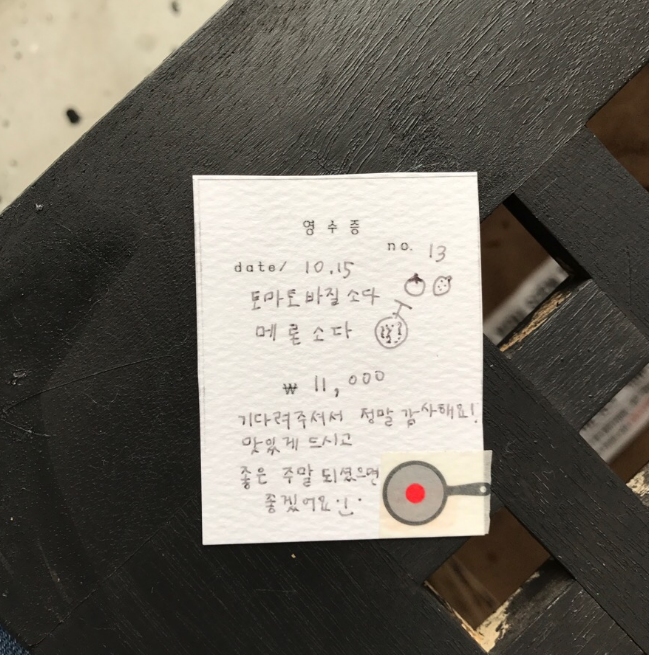 영수증
no. 13
date/ 10.15
토마토바질소다
메론소다
₩ 11,000
기다려주셔서 정말 감사해요!
맛있게 드시고
좋은 주말 되셨으면
좋겠어요 :)